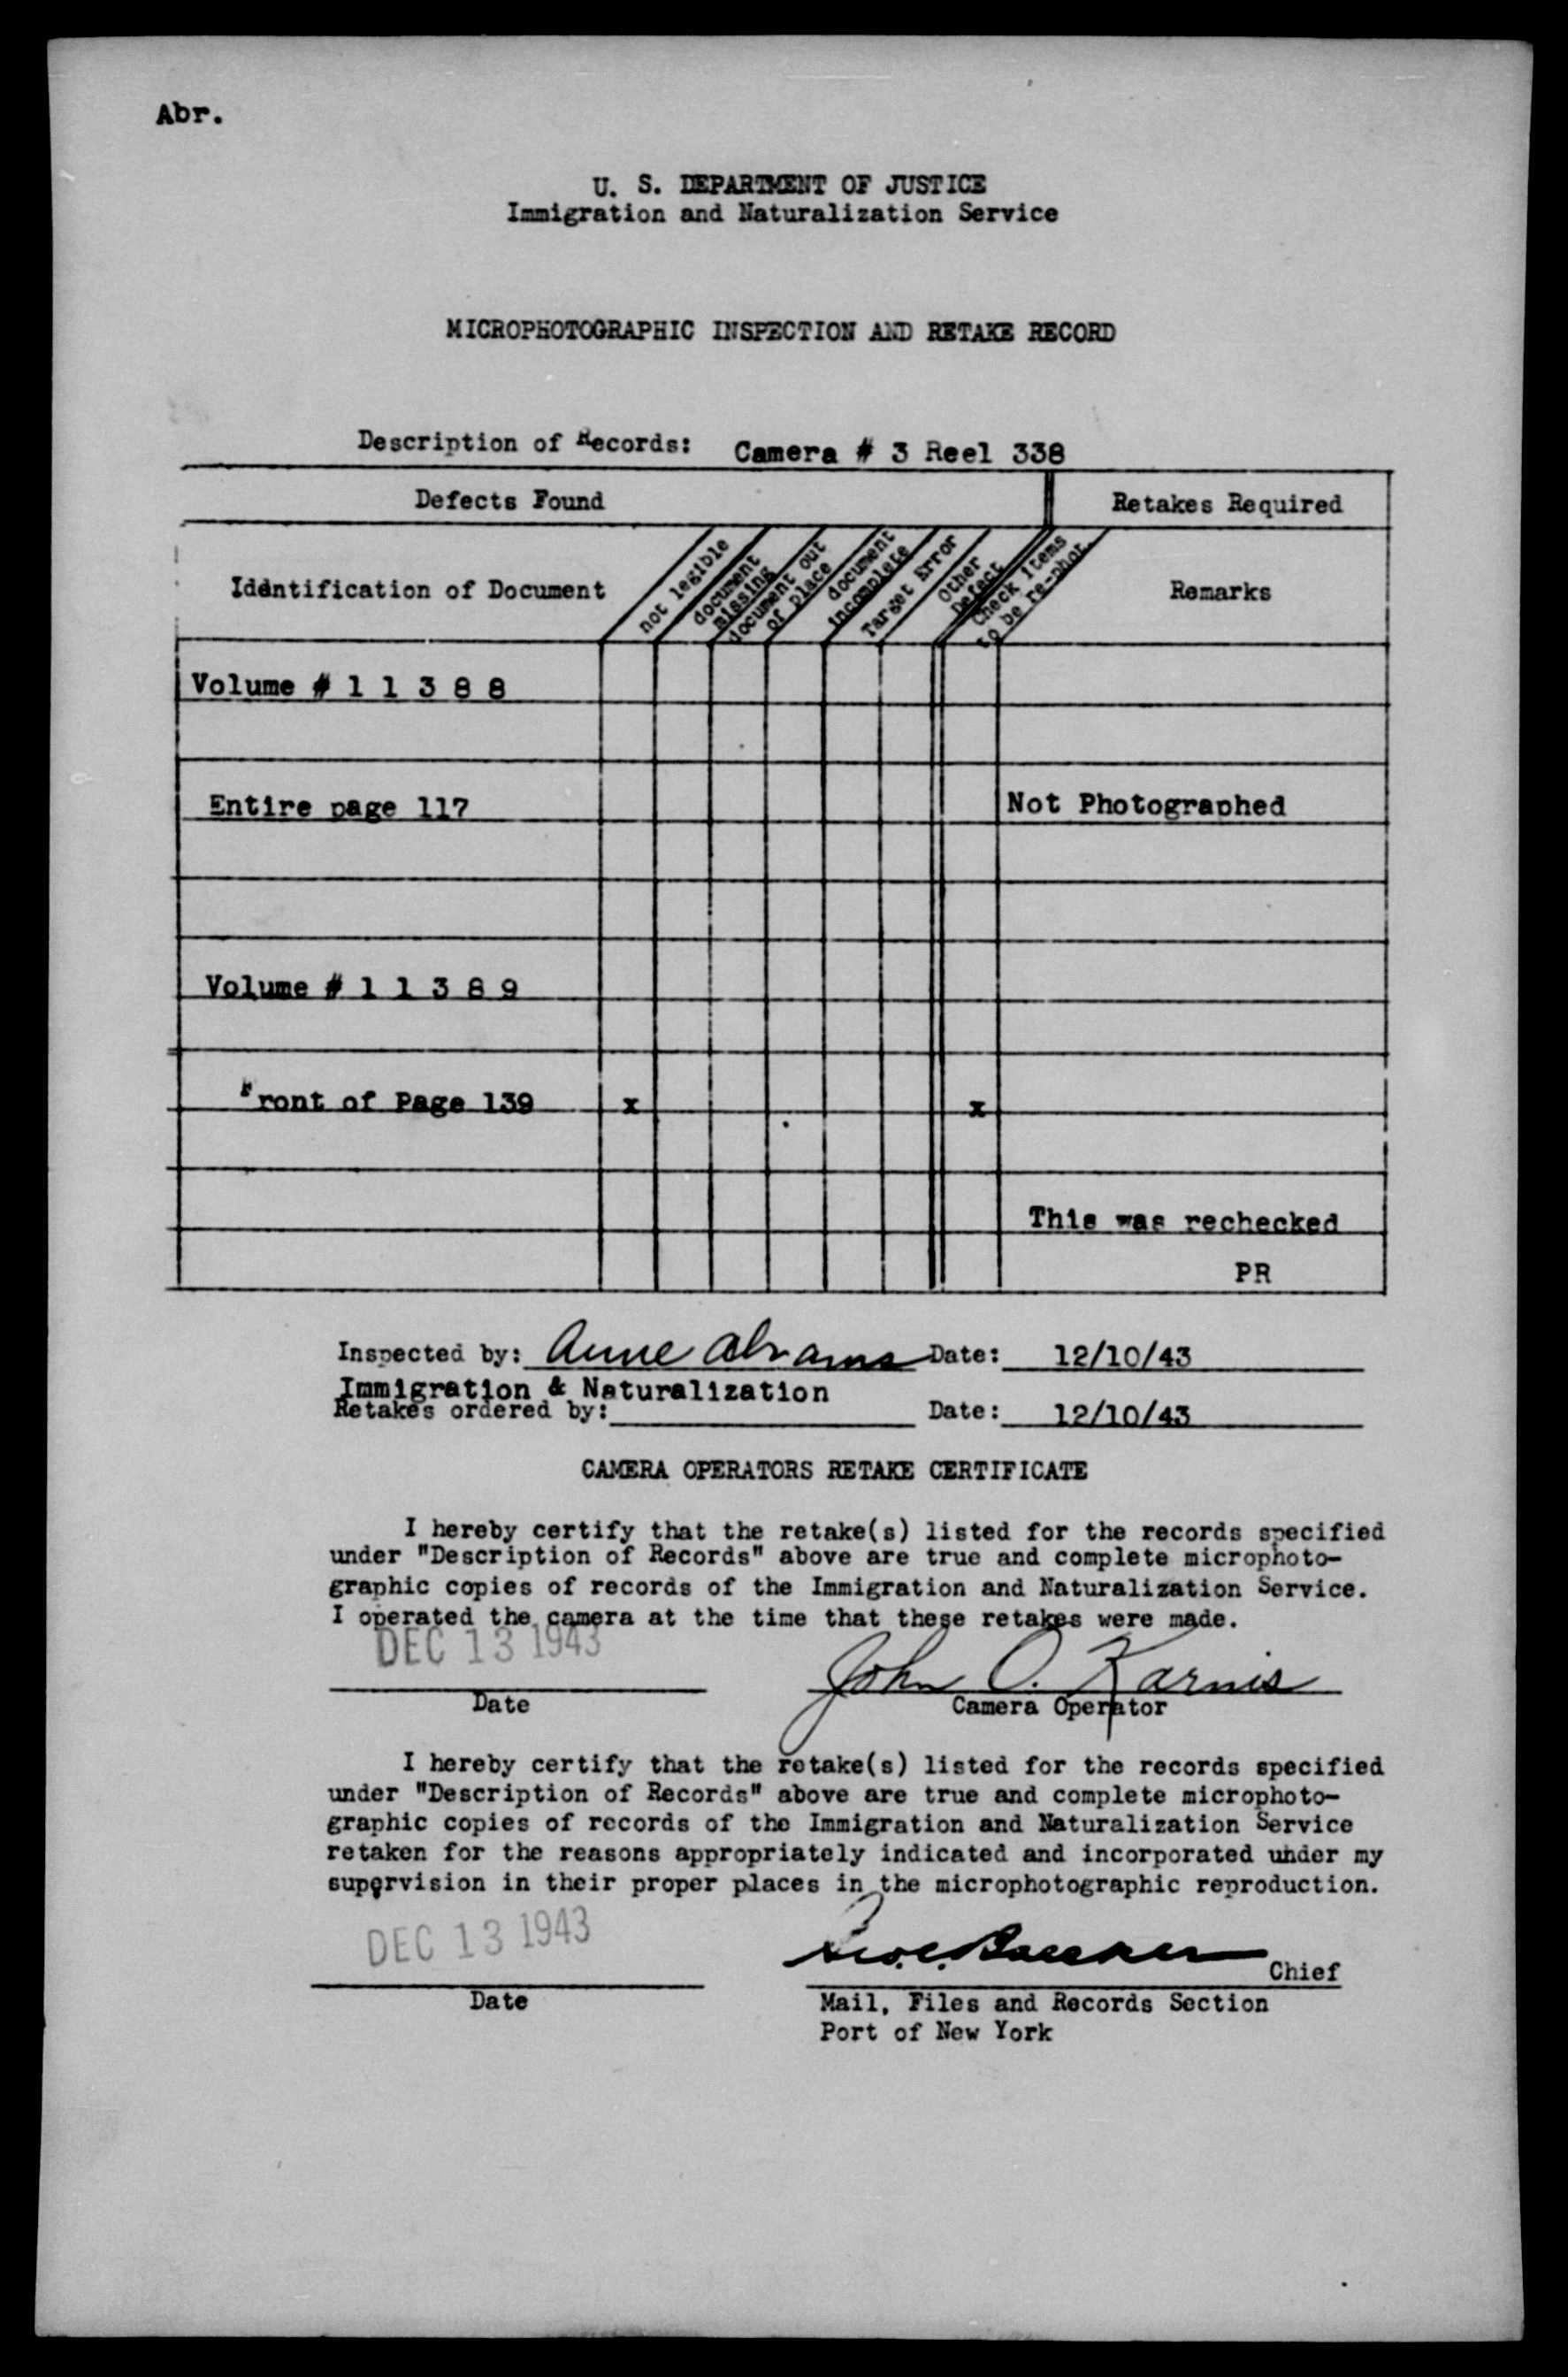 Abr.
U. S. DEPARTMENT OF JUSTICE
Immigration and Naturalization Service
MICROPHOTOGRAPHIC INSPECTION AND RETAKE RECORD
Description of Records: Camera # 3 Reel 338
Defects Found Retakes Required
Identification of Document
not legible
document
missing
document out
of place
document
incomplete
Target Error
Other
Defect
Check Items
to be re-phot.
Remarks
Volume # 1 1 3 8 8
Entire page 117 Not Photographed
Volume # 1 1 3 8 9
Front of Page 139 x x
This was rechecked
PR
Inspected by: Anne Abrams Date: 12/10/43
Immigration & Naturalization
Retakes ordered by: Date: 12/10/43
CAMERA OPERATORS RETAKE CERTIFICATE
I hereby certify that the retake(s) listed for the records specified
under "Description of Records" above are true and complete microphoto-
graphic copies of records of the Immigration and Naturalization Service.
I operated the camera at the time that these retakes were made.
DEC 13 1943 John O. Karnis
Date Camera Operator
I hereby certify that the retake(s) listed for the records specified
under "Description of Records" above are true and complete microphoto-
graphic copies of records of the Immigration and Naturalization Service
retaken for the reasons appropriately indicated and incorporated under my
supervision in their proper places in the microphotographic reproduction.
DEC 13 1943
Chief
Date Mail, Files and Records Section
Port of New York